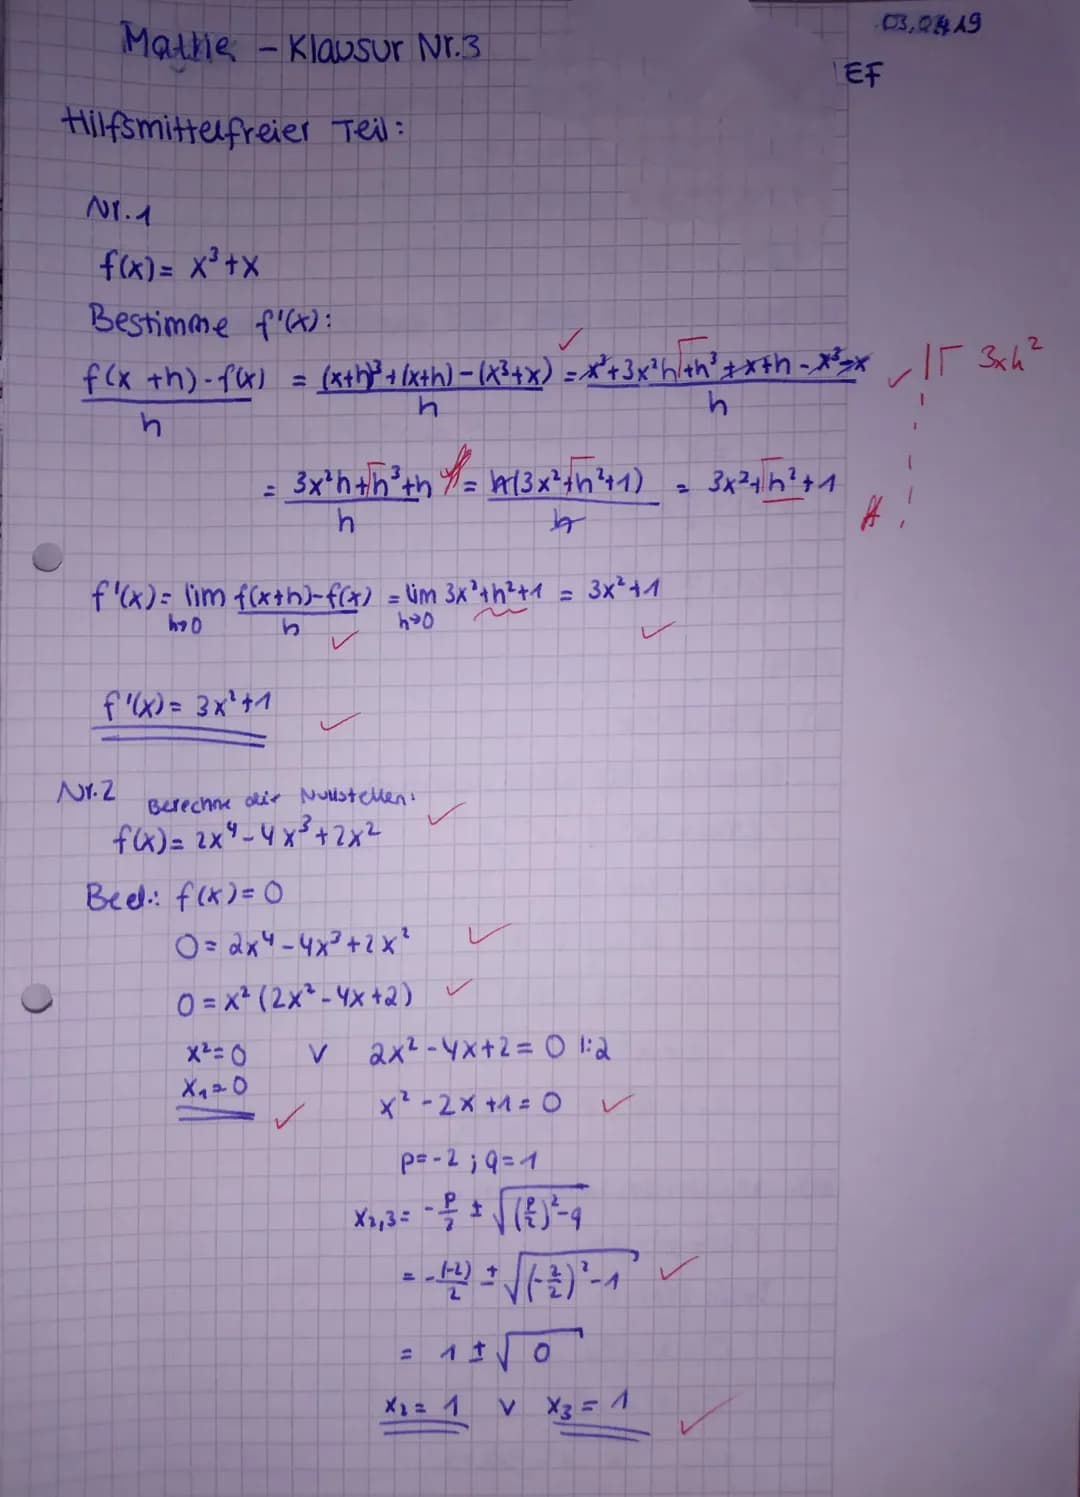 Mathe - Klausur Nr.3
EF
Hilfsmittelfreier Teil:
Nr.1
f(x)= x³+x
Bestimme f'(x):
(f(x+h)-f(x))/h = ((x+h)³+(x+h)-(x³+x))/h = (x³+3x²h+h³+x+h-x³-x)/h ✓ |Γ 3xh²
= (3x²h+h³+h)/h = h(3x²+h²+1)/h = 3x²+h²+1
f'(x)= lim h→0 (f(x+h)-f(x))/h = lim h→0 3x²+h²+1 = 3x²+1
f'(x)= 3x²+1
Nr.2 Berechne die Nullstellen:
f(x)= 2x⁴-4x³+2x²
Bed.: f(x)=0
0=2x⁴-4x³+2x²
0=x²(2x²-4x+2)
x²=0 v 2x²-4x+2=0 |:2
x₁=0
x²-2x+1=0
p=-2; q=1
x₂,₃= -p/2 ± √((p/2)²-q)
= -(-2)/2 ± √((-2/2)²-1)
= 1±√0
x₂=1 v x₃=1